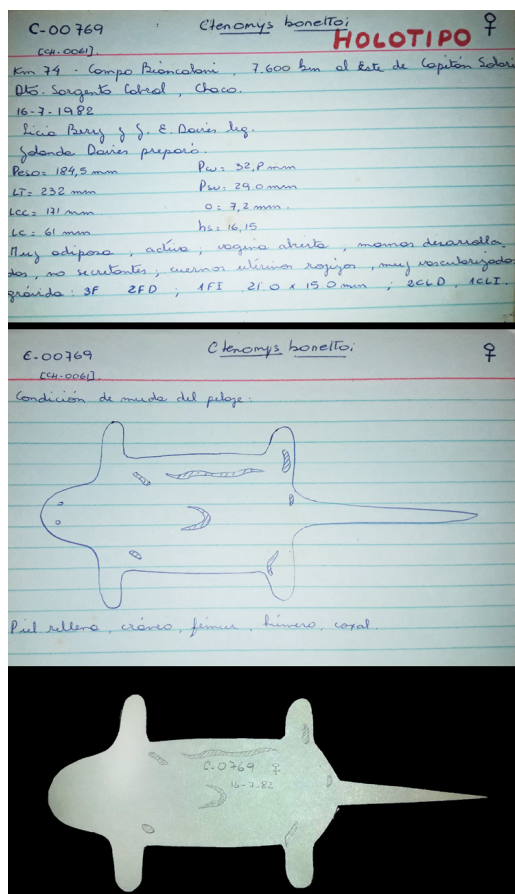 C-00769 Ctenomys bonettoi ♀
HOLOTIPO
[CH-0061].
Km 74 - Campo Biancalani, 7.600 km al Este de Capitán Solari
Dto. Sargento Cabral, Chaco.
16-7-1982
Licia Berry y J. E. Davies leg.
Jolanda Davies preparó.
Peso = 184,5 mm Pw = 32,8 mm
LT = 232 mm Psw = 29.0 mm
LCC = 171 mm o = 7,2 mm.
LC = 61 mm hs = 16,15
Muy adiposa, activa, vagina abierta, mamas desarrolla-
das, no secretantes; cuernos uterinos rojizos, muy vascularizados
grávida: 3F 2FD; 1FI 21.0 x 15.0 mm; 2CLD, 1CLI.
C-00769 Ctenomys bonettoi ♀
[CH-0061].
Condición de muda del pelaje:
Piel rellena, cráneo, fémur, húmero, coxal.
C-0769 ♀
16-7-82